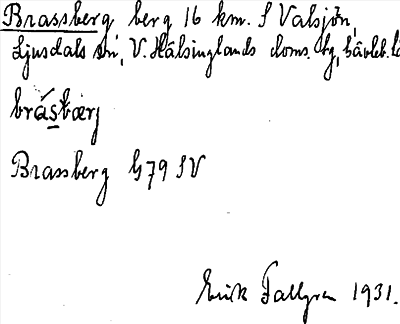 Brassberg berg 16 km. S Valsjön,
Ljusdals sn, V. Hälsinglands doms. tg, Gävleb. lä
bråsbærj
Brassberg G79 SV
Erik Fallgren 1931.